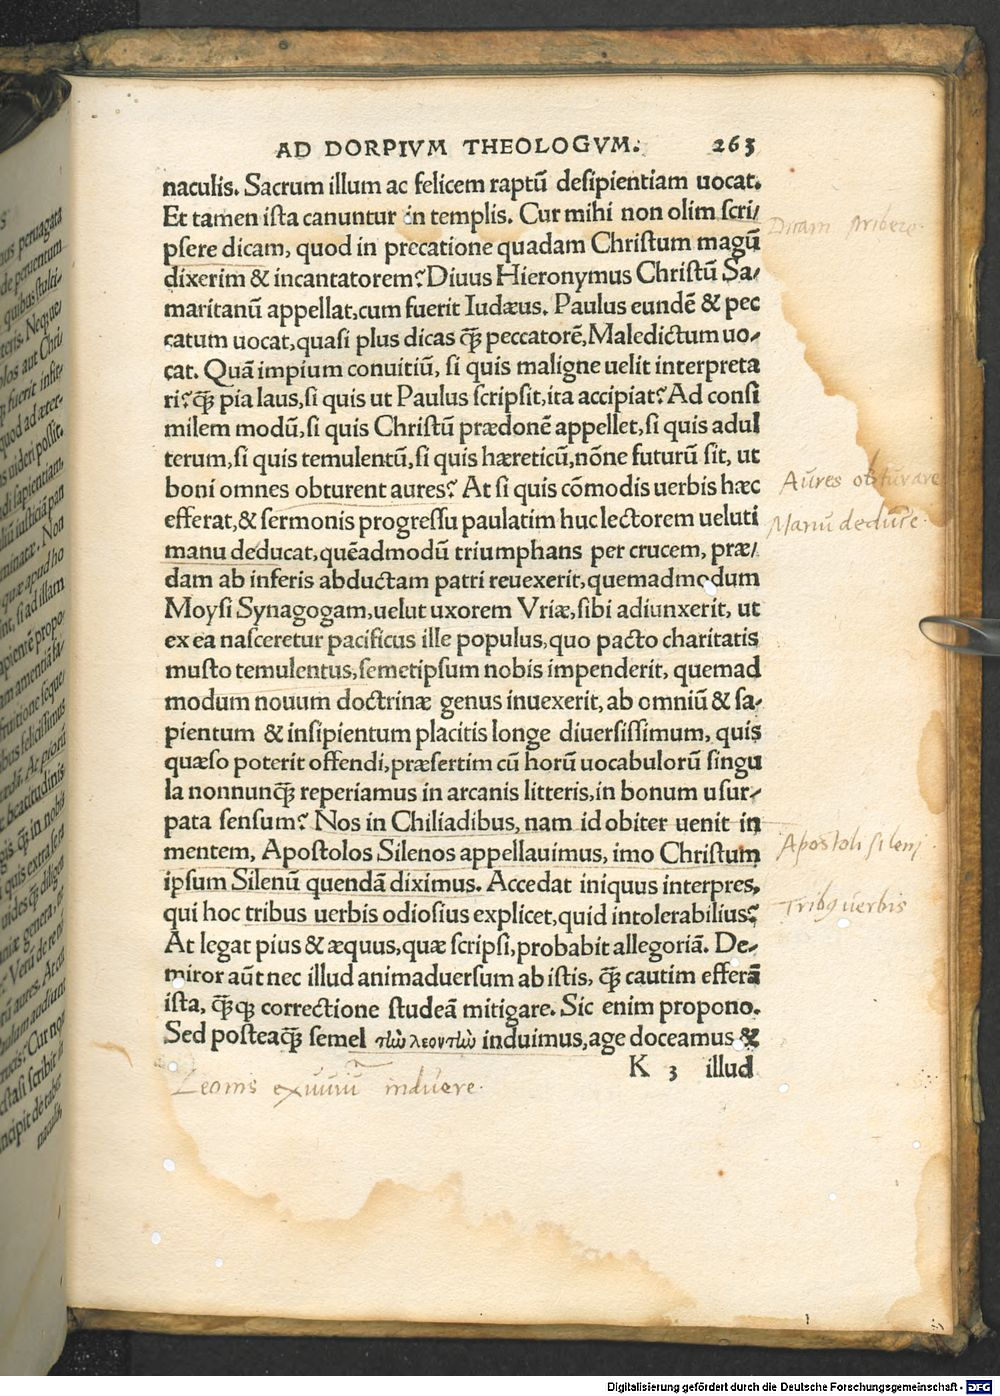 AD DORPIVM THEOLOGVM. 263
naculis. Sacrum illum ac felicem raptū desipientiam uocat.
Et tamen ista canuntur in templis. Cur mihi non olim scri/
psere dicam, quod in precatione quadam Christum magū
dixerim & incantatorem? Diuus Hieronymus Christū Sa/
maritanū appellat,cum fuerit Iudæus. Paulus eundē & pec
catum uocat,quasi plus dicas q̄ꝫ peccatorē,Maledictum uo/
cat. Quā impium conuitiū, si quis maligne uelit interpreta
ri?q̄ꝫ pia laus,si quis ut Paulus scripsit,ita accipiat? Ad consi
milem modū,si quis Christū prædonē appellet,si quis adul
terum,si quis temulentū,si quis hæreticū,nōne futurū sit, ut
boni omnes obturent aures? At si quis cōmodis uerbis hæc
efferat,& sermonis progressu paulatim huc lectorem ueluti
manu deducat,quēadmodū triumphans per crucem, præ/
dam ab inferis abductam patri reuexerit,quemadmodum
Moysi Synagogam,uelut uxorem Vriæ,sibi adiunxerit, ut
ex ea nasceretur pacificus ille populus,quo pacto charitatis
musto temulentus,semetipsum nobis impenderit, quemad
modum nouum doctrinæ genus inuexerit,ab omniū & sa/
pientum & insipientum placitis longe diuersissimum, quis
quæso poterit offendi,præsertim cū horū uocabulorū singu
la nonnunq̄ꝫ reperiamus in arcanis litteris,in bonum usur/
pata sensum? Nos in Chiliadibus,nam id obiter uenit in
mentem, Apostolos Silenos appellauimus, imo Christum
ipsum Silenū quendā diximus. Accedat iniquus interpres,
qui hoc tribus uerbis odiosius explicet,quid intolerabilius?
At legat pius & æquus,quæ scripsi,probabit allegoriā. De/
miror aūt nec illud animaduersum ab istis, q̄ꝫ cautim efferā
ista, q̄ꝫqꝫ correctione studeā mitigare. Sic enim propono.
Sed posteaq̄ꝫ semel τὴν λεοντὴν induimus,age doceamus &
K 3 illud
Dicam scribere.
Aures obturare
Manu deducere.
Apostoli sileni
Tribꝫ uerbis
Leonis exuuiū induere.
Digitalisierung gefördert durch die Deutsche Forschungsgemeinschaft - DFG